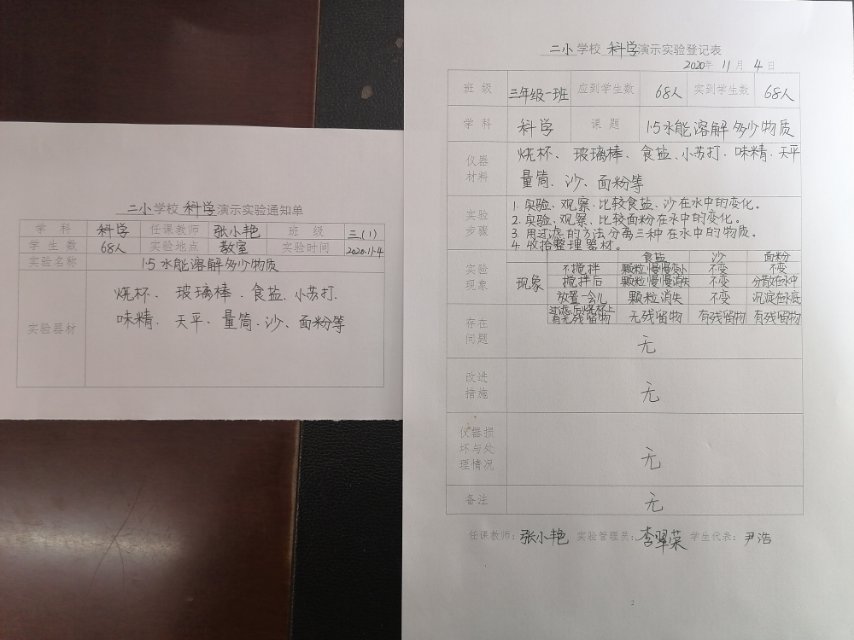 二小学校 科学演示实验通知单
学 科 科学 任课教师 张小艳 班 级 三(1)
学 生 数 68人 实验地点 教室 实验时间 2020.11.4
实验名称 1.5水能溶解多少物质
实验器材 烧杯、玻璃棒、食盐、小苏打、
味精、天平、量筒、沙、面粉等
二小学校 科学演示实验登记表
2020年 11 月 4 日
班 级 三年级一班 应到学生数 68人 实到学生数 68人
学 科 科学 课 题 1.5水能溶解多少物质
仪器
材料
烧杯、玻璃棒、食盐、小苏打、味精、天平
量筒、沙、面粉等
实验
步骤
1. 实验、观察、比较食盐、沙在水中的变化。
2. 实验、观察、比较面粉在水中的变化。
3. 用过滤的方法分离三种在水中的物质。
4. 收拾整理器材。
实验
现象
现象
食盐 沙 面粉
不搅拌 颗粒慢慢变小 不变 不变
搅拌后 颗粒慢慢消失 不变 分散在水中
放置一会儿 颗粒消失 不变
有无残留物 无残留物 有残留物 有残留物
存在
问题
无
改进
措施
无
仪器损
坏与处
理情况
无
备注 无
任课教师：张小艳 实验管理员：李翠荣 学生代表：尹浩
2